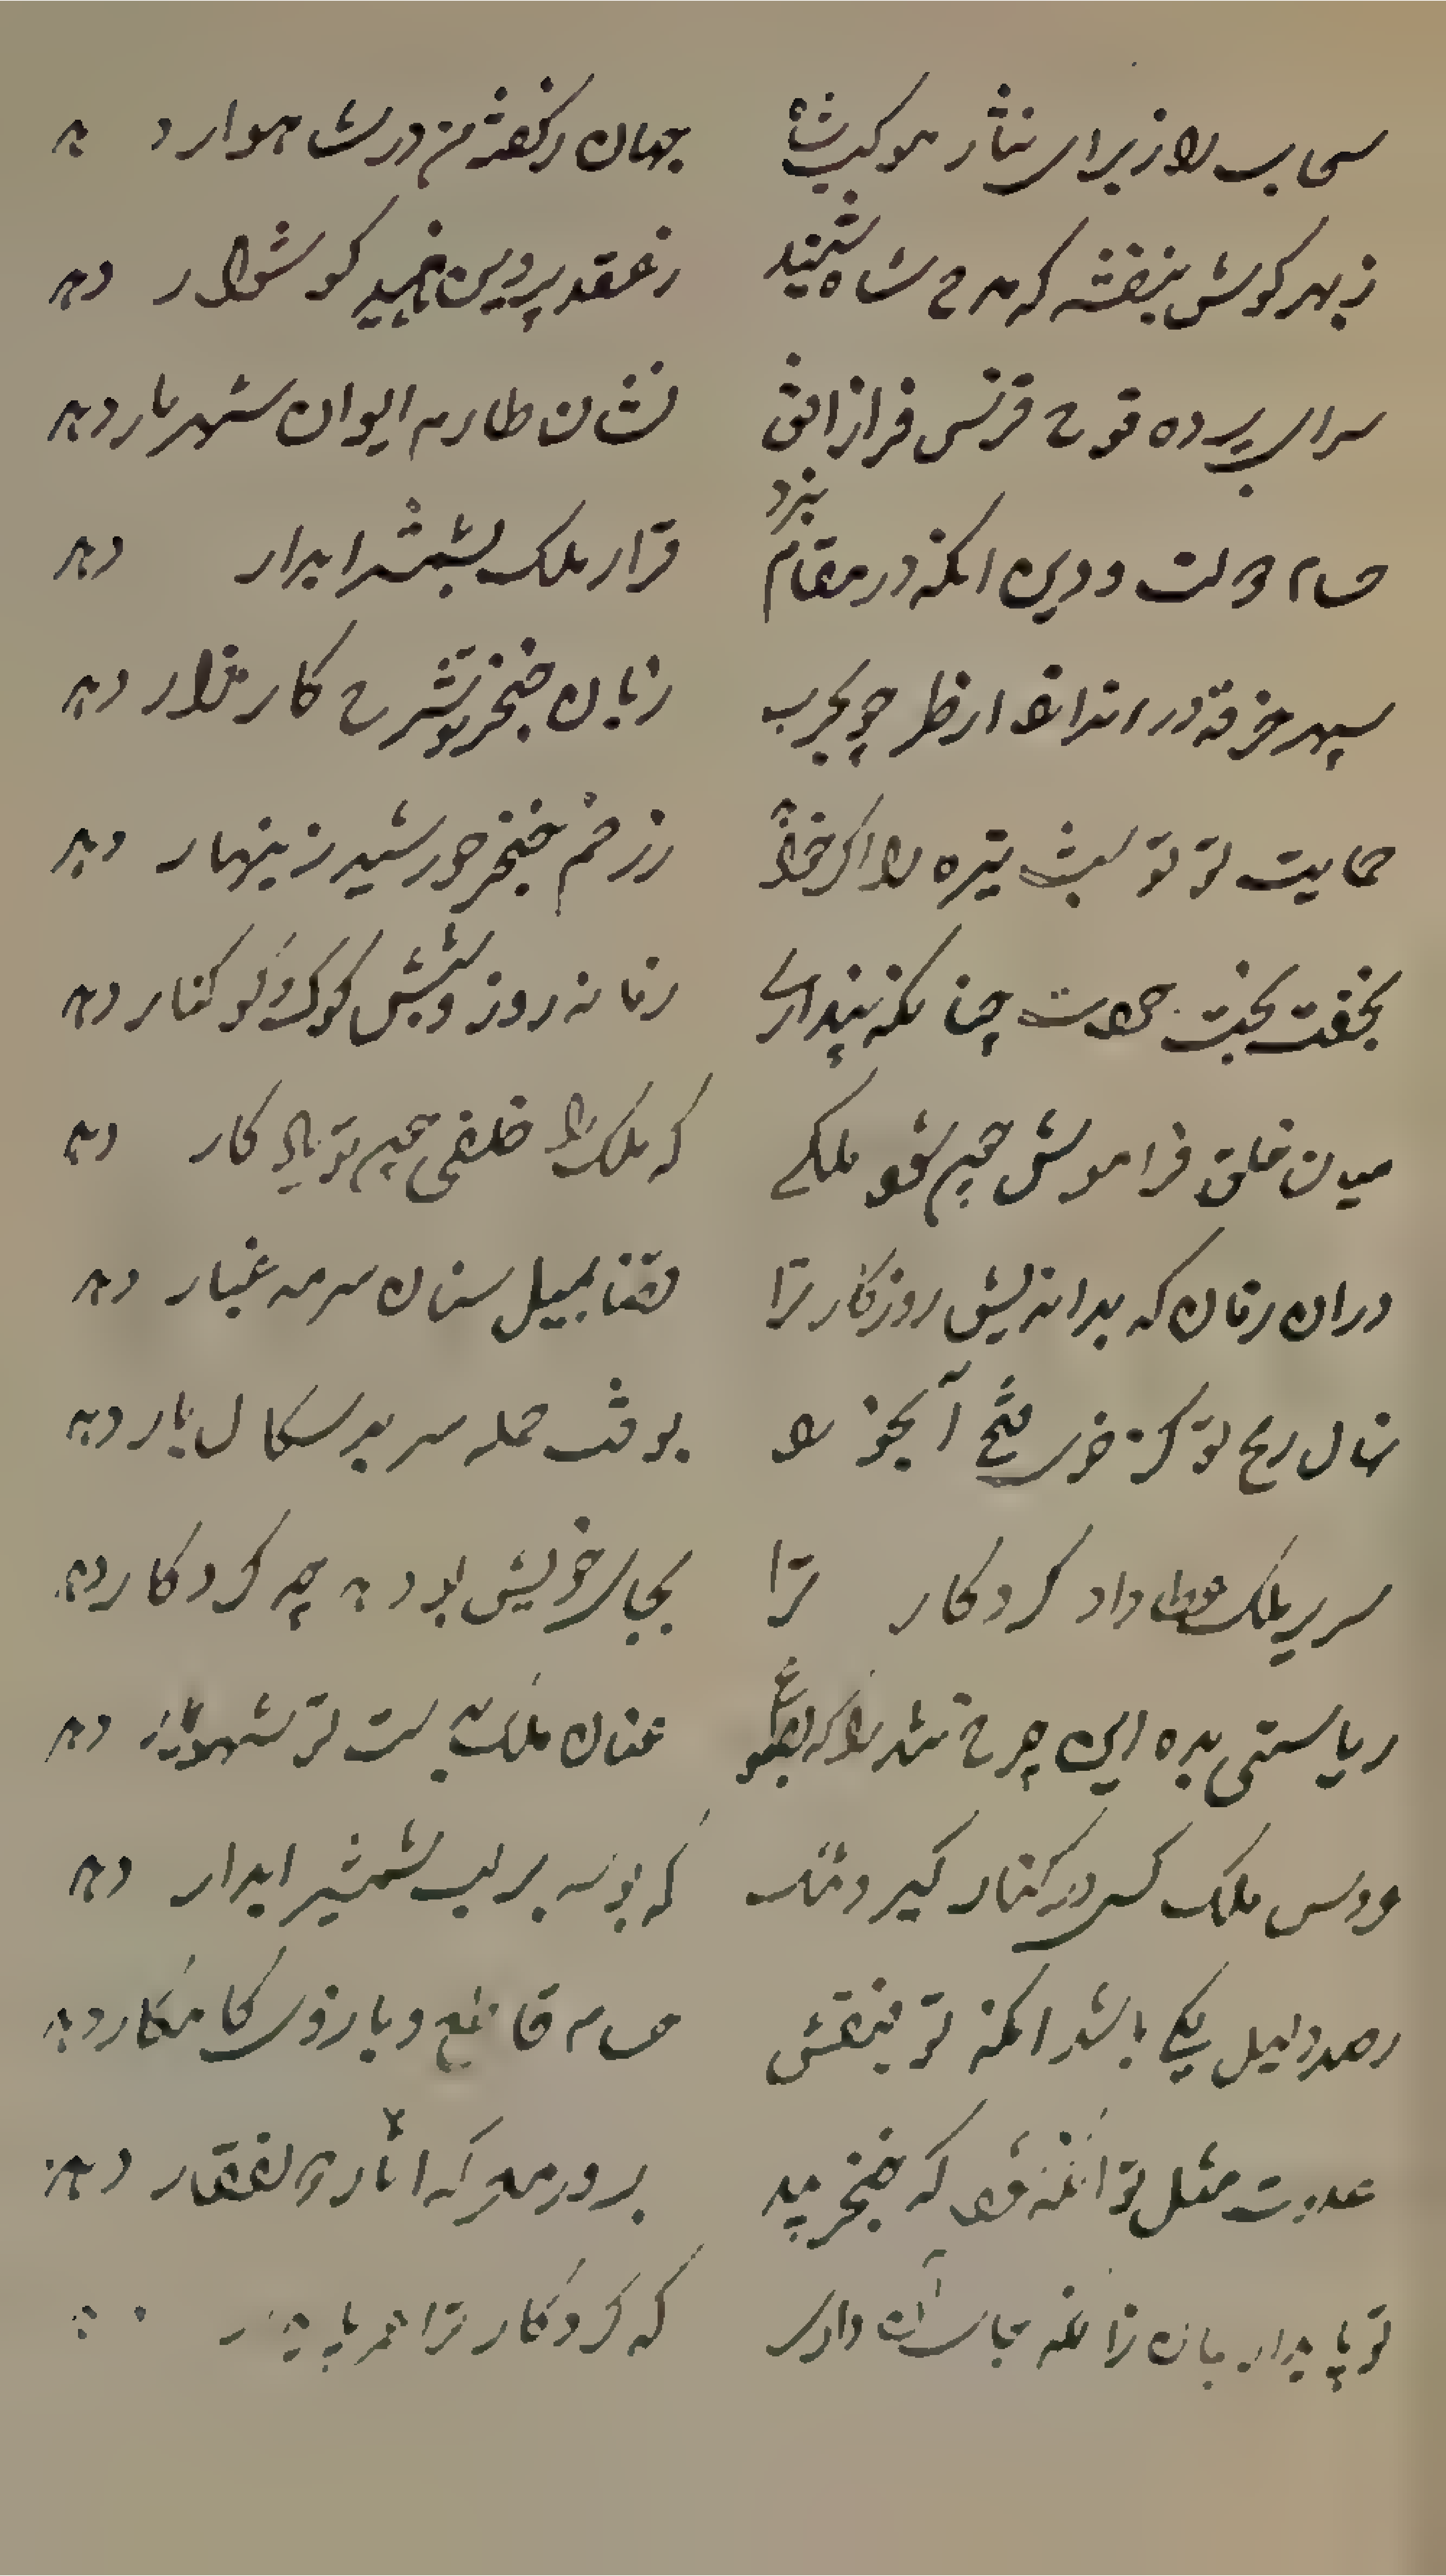 سحاب را ز برای نثار موکب شاه جهان گرفته در شاهوار دهد
ز بهر گوش بنفشه که مدح شاه شنید ز عقد پروین گوشوار دهد
سرای پرده قوس قزح فراز افق نشان طارم ایوان شهریار دهد
حسام دولت و دین آنکه در مقام نبرد قرار ملک بشمشیر ابدار دهد
سپهر خرقه در اندازد از طرب چو بحرب زبان خنجر تو شرح کارزار دهد
حمایت تو شب تیره را اگر خواهد ز زخم خنجر خورشید زینهار دهد
بخفت بخت حسودت چنانکه پنداری زمانه روز و شبش کوک و کوکنار دهد
میان خلق فراموش چون شود ملکی که ملک را خلفی چون تو یادگار دهد
دران زمان که بداندیش روزکار ترا قضا بمیل سنان سرمه غبار دهد
نهال رمح تو کز خون فتح آبخور بوقت حمله سر بدسکال بار دهد
سریر ملک عطا داد کردکار ترا بجای خویش بود هر چه کردکار دهد
ریاستی بده این چرخ تند را که بطوع عنان ملک بدست تو شهریار دهد
عروس ملک کسی در کنار گیرد تنگ که بوسه بر لب شمشیر ابدار دهد
ز صد دلیل یکی باشد آنکه تو حسام قاطع و بازوی کامکار دهد
عدوت مثل تو آنگه شود که خنجر بید بروز معرکه آثار ذوالفقار دهد
تو پایدار بمان زانکه جای آن داری که کردکار ترا عمر پایدار